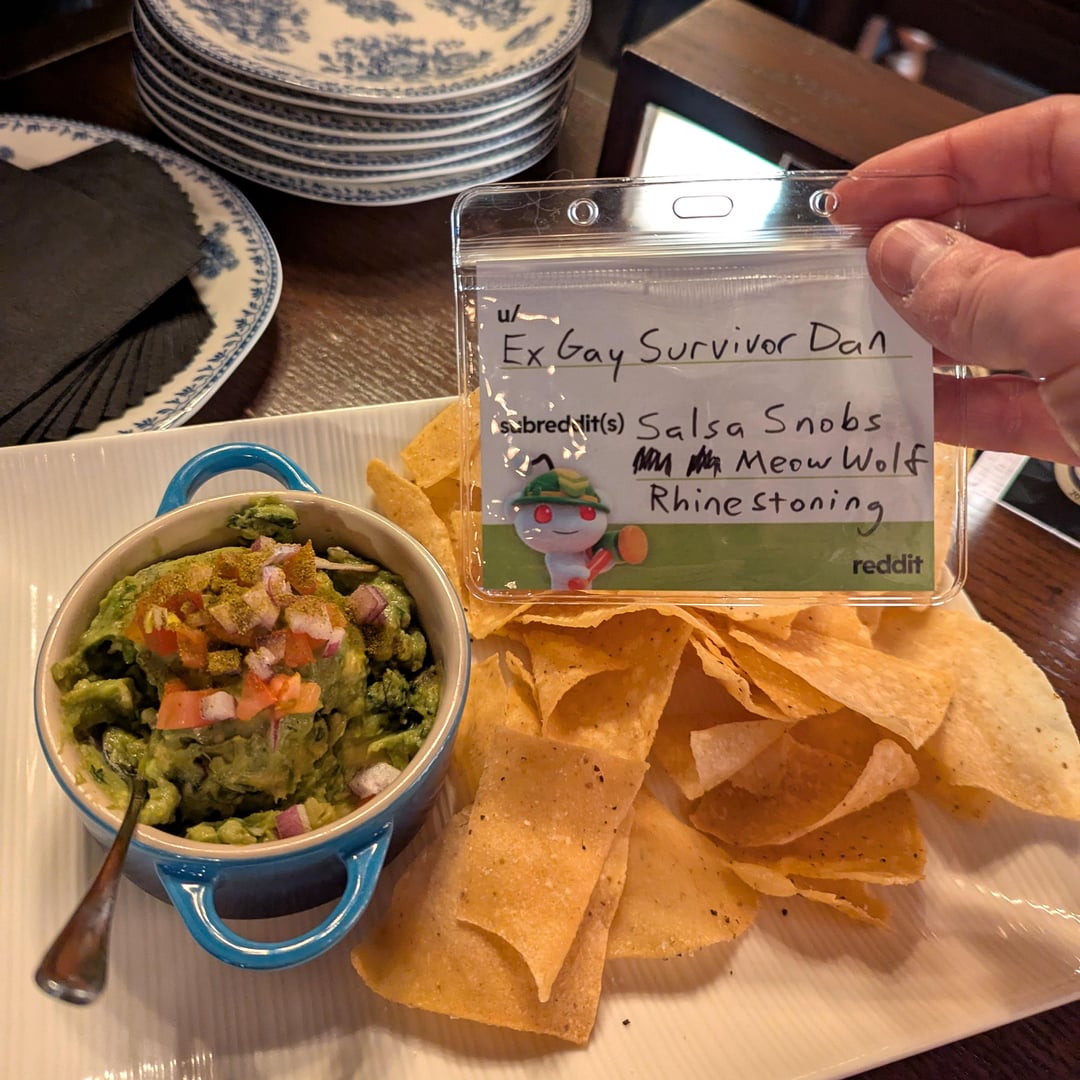 u/
Ex Gay Survivor Dan
subreddit(s) Salsa Snobs
Meow Wolf
Rhinestoning
reddit